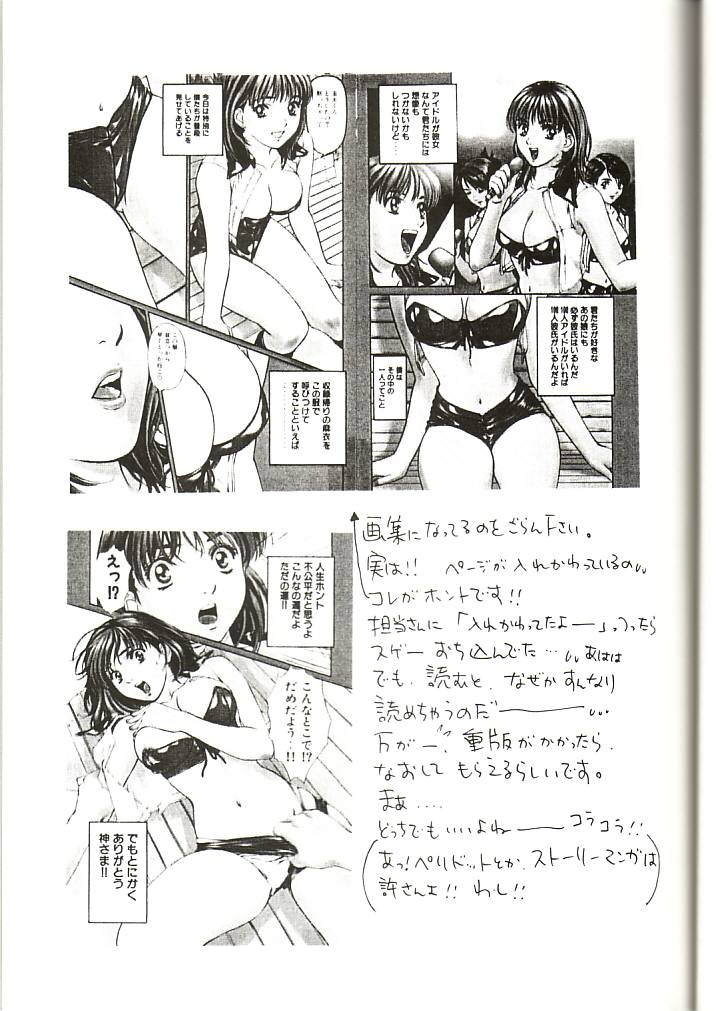 アイドルが彼女
なんて君たちには
想像も
つかないかも
しれないけど…
君たちが好きな
あの娘にも
必ず彼氏はいるんだ
人アイドルがいれば
人彼氏がいるんだよ
僕は
その中の
一人ってこと
今日は特別に
僕たちが普段
していることを
見せてあげる
収録帰りの麻衣を
この服で
呼びつけて
することといえば
えっ!?
人生ホント
不公平だと思うよ
こんなの運だよ
ただの運!!
こんなとこで!?
だめだよう…!!
でもとにかく
ありがとう
神さま!!
画集になってるのをごらん下さい。
実は!! ページが入れかわっているの
コレがホントです!!
担当さんに「入れかわってたよー」っつったら
スゲー おち込んでた… あはは
でも、読むと、なぜかすんなり
読めちゃうのだー…
万が一、重版がかかったら、
なおして もらえるらしいです。
まぁ….
どっちでもいいよねー コラコラ!!
(あっ!ペリドットとか、ストーリーマンガは
許さんよ!! わし!!)